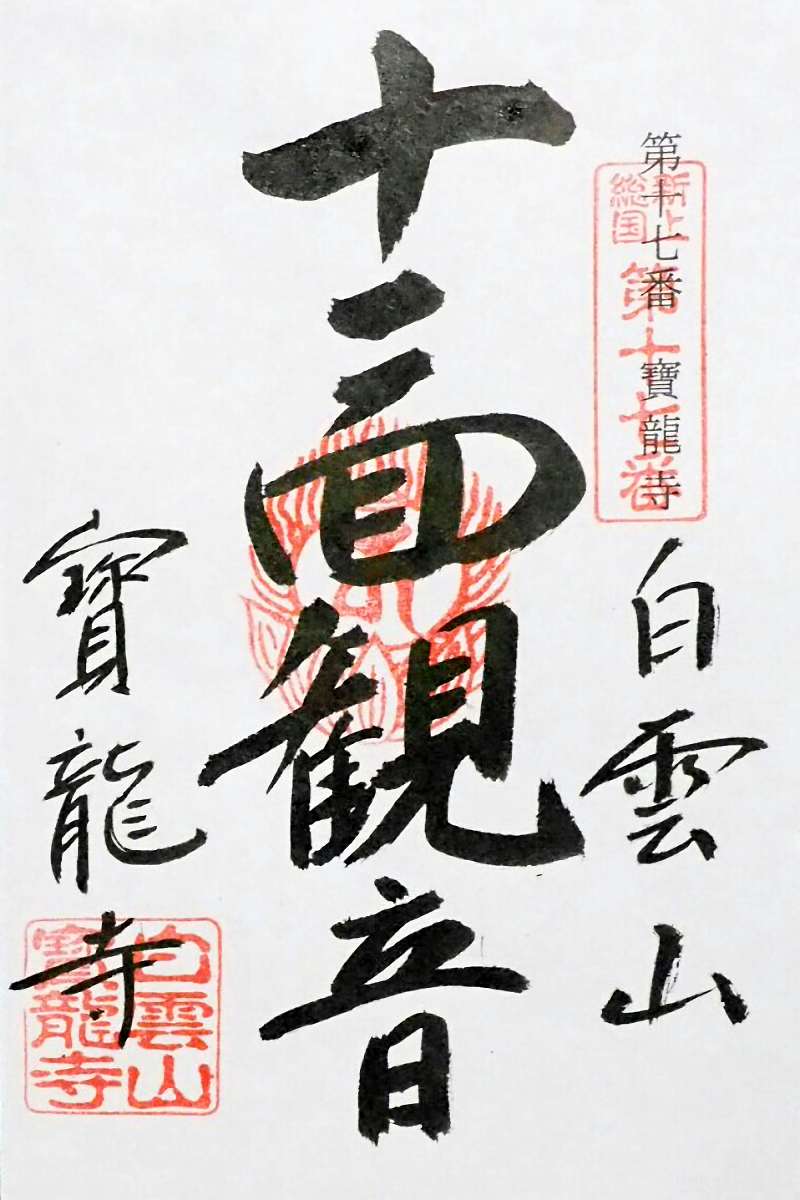 第十七番 寶龍寺
新上
総国
第十七番
白雲山
十一面観音
寶龍寺
白雲山
寶龍寺